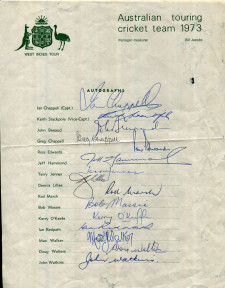 Australian touring
cricket team 1973
WEST INDIES TOUR
Manager/treasurer Bill Jacobs
AUTOGRAPHS
Ian Chappell (Capt.) Ian Chappell
Keith Stackpole (Vice-Capt.)
John Benaud John Benaud
Greg Chappell Greg Chappell
Ross Edwards Ross Edwards
Jeff Hammond Jeff Hammond
Terry Jenner
Dennis Lillee
Rod Marsh Rod Marsh
Bob Massie Bob Massie
Kerry O'Keeffe Kerry O'Keeffe
Ian Redpath
Max Walker Max Walker
Doug Walters Doug Walters
John Watkins John Watkins